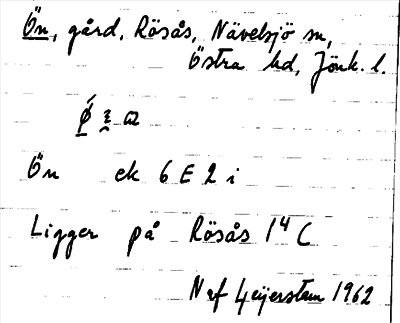 Ön, gård, Rösås, Nävelsjö sn,
Östra hd, Jönk. l.
Ön ek 6 E 2 i
Ligger på Rösås 1⁴ C
N af Geijerstam 1962